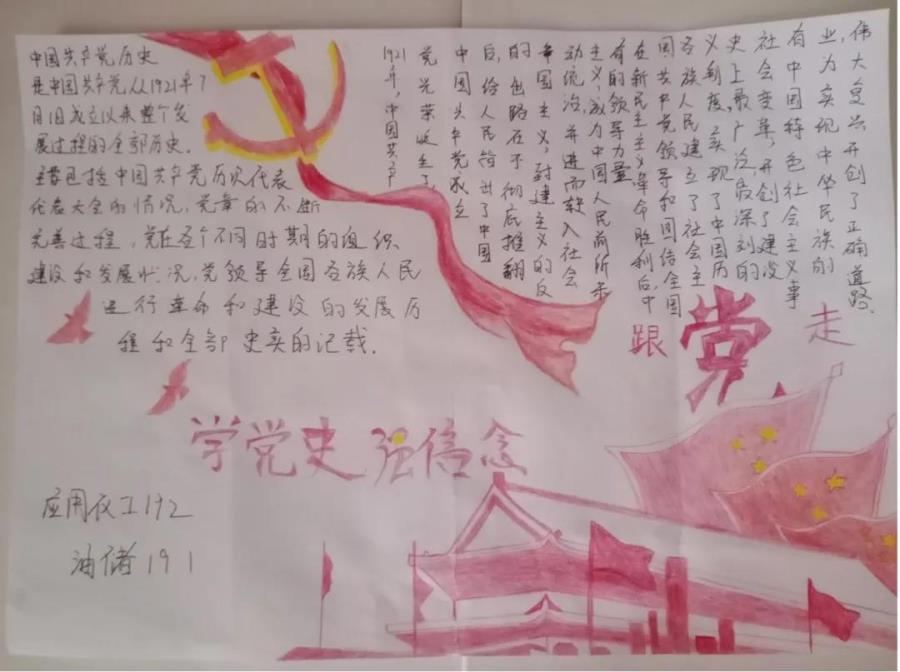 中国共产党历史
是中国共产党从1921年7
月1日成立以来整个发
展过程的全部历史.
主要包括中国共产党历次代表
代表大会的情况,党章的不断
完善过程,党在各个不同时期的组织
建设和发展状况,党领导全国各族人民
进行革命和建设的发展历
程和全部史实的记载.
1921年,中国共产
党光荣诞生了,
中国共产党成立
后,给人民指出了中国
的出路在于彻底推翻
帝国主义、封建主义的反
动统治,并进而转入社会
主义,成为中国人民前所未
有的领导力量
在新民主主义革命胜利后,中
国共产党领导和团结全国
各族人民建立了社会主
义制度,实现了中国历
史上最广泛最深刻的
社会变革,开创了建设
有中国特色社会主义事
业,为实现中华民族的
伟大复兴开创了正确道路.
跟党走
学党史 强信念
应用化工192
油储191